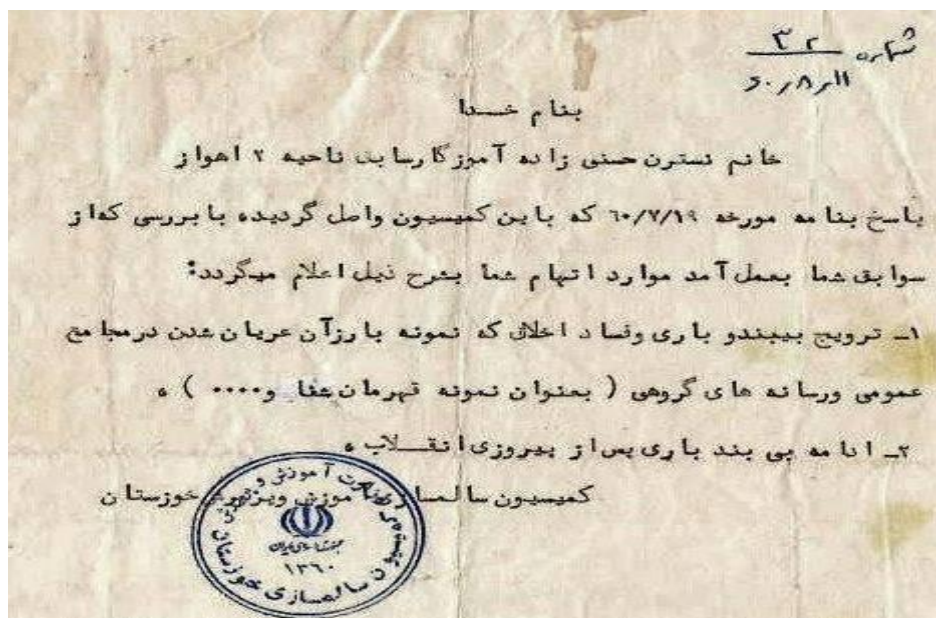 شماره ۳۲
۶۰٫۸٫۱۱
بنام خدا
خانم نسترن حسنی زاده آموزگار سابق ناحیه ۲ اهواز
پاسخ بنامه مورخه ۶۰/۷/۱۹ که باین کمیسیون واصل گردیده با بررسی که از
سوابق شما بعمل آمد موارد اتهام شما بشرح ذیل اعلام میگردد:
۱ــ ترویج بیبندو باری وفساد اخلاق که نمونه بارزآن عریان شدن درمجامع
عمومی ورسانه های گروهی ( بعنوان نمونه قهرمان شنا و۰۰۰۰ ) ۰
۲ــ ادامه بی بند باری پس از پیروزی انقلاب ۰
کمیسیون سالمسا آموزش وپرورش خوزستان
جمهوری اسلامی ایران
۱۳۶۰
سالمسازی خوزستان